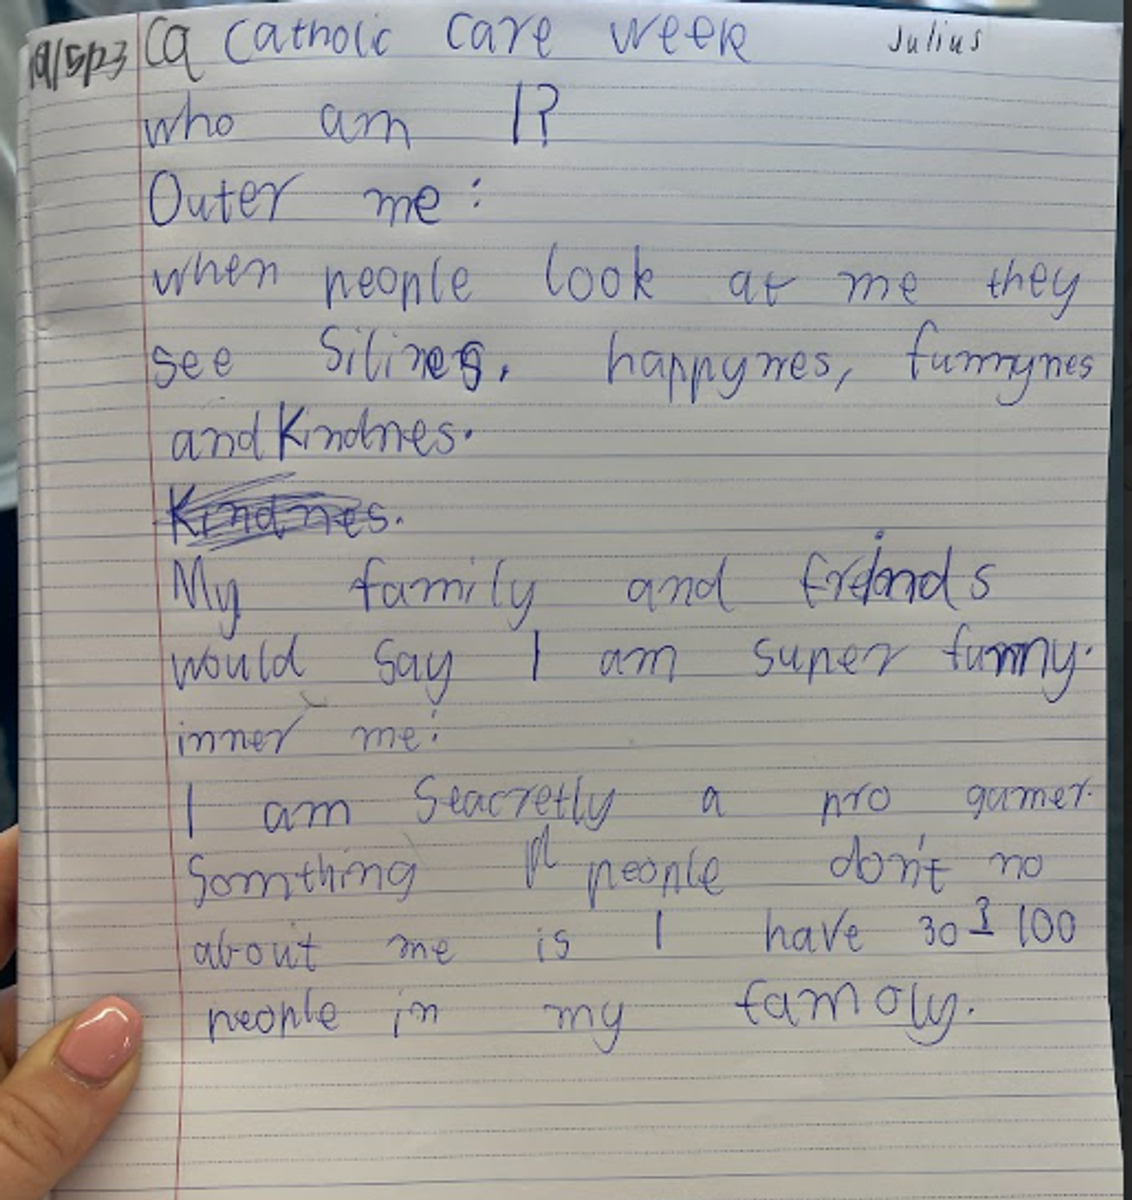 19/5/23 Ca Catholic Care week Julius
who am I?
Outer me:
when people look at me they
see Silines, happynes, funnynes
and Kindnes.
Kindnes.
My family and freinds
would say I am super funny.
inner me:
I am Seacretly a pro gamer.
Somthing people don't no
about me is I have 30 100
people in my famoly.